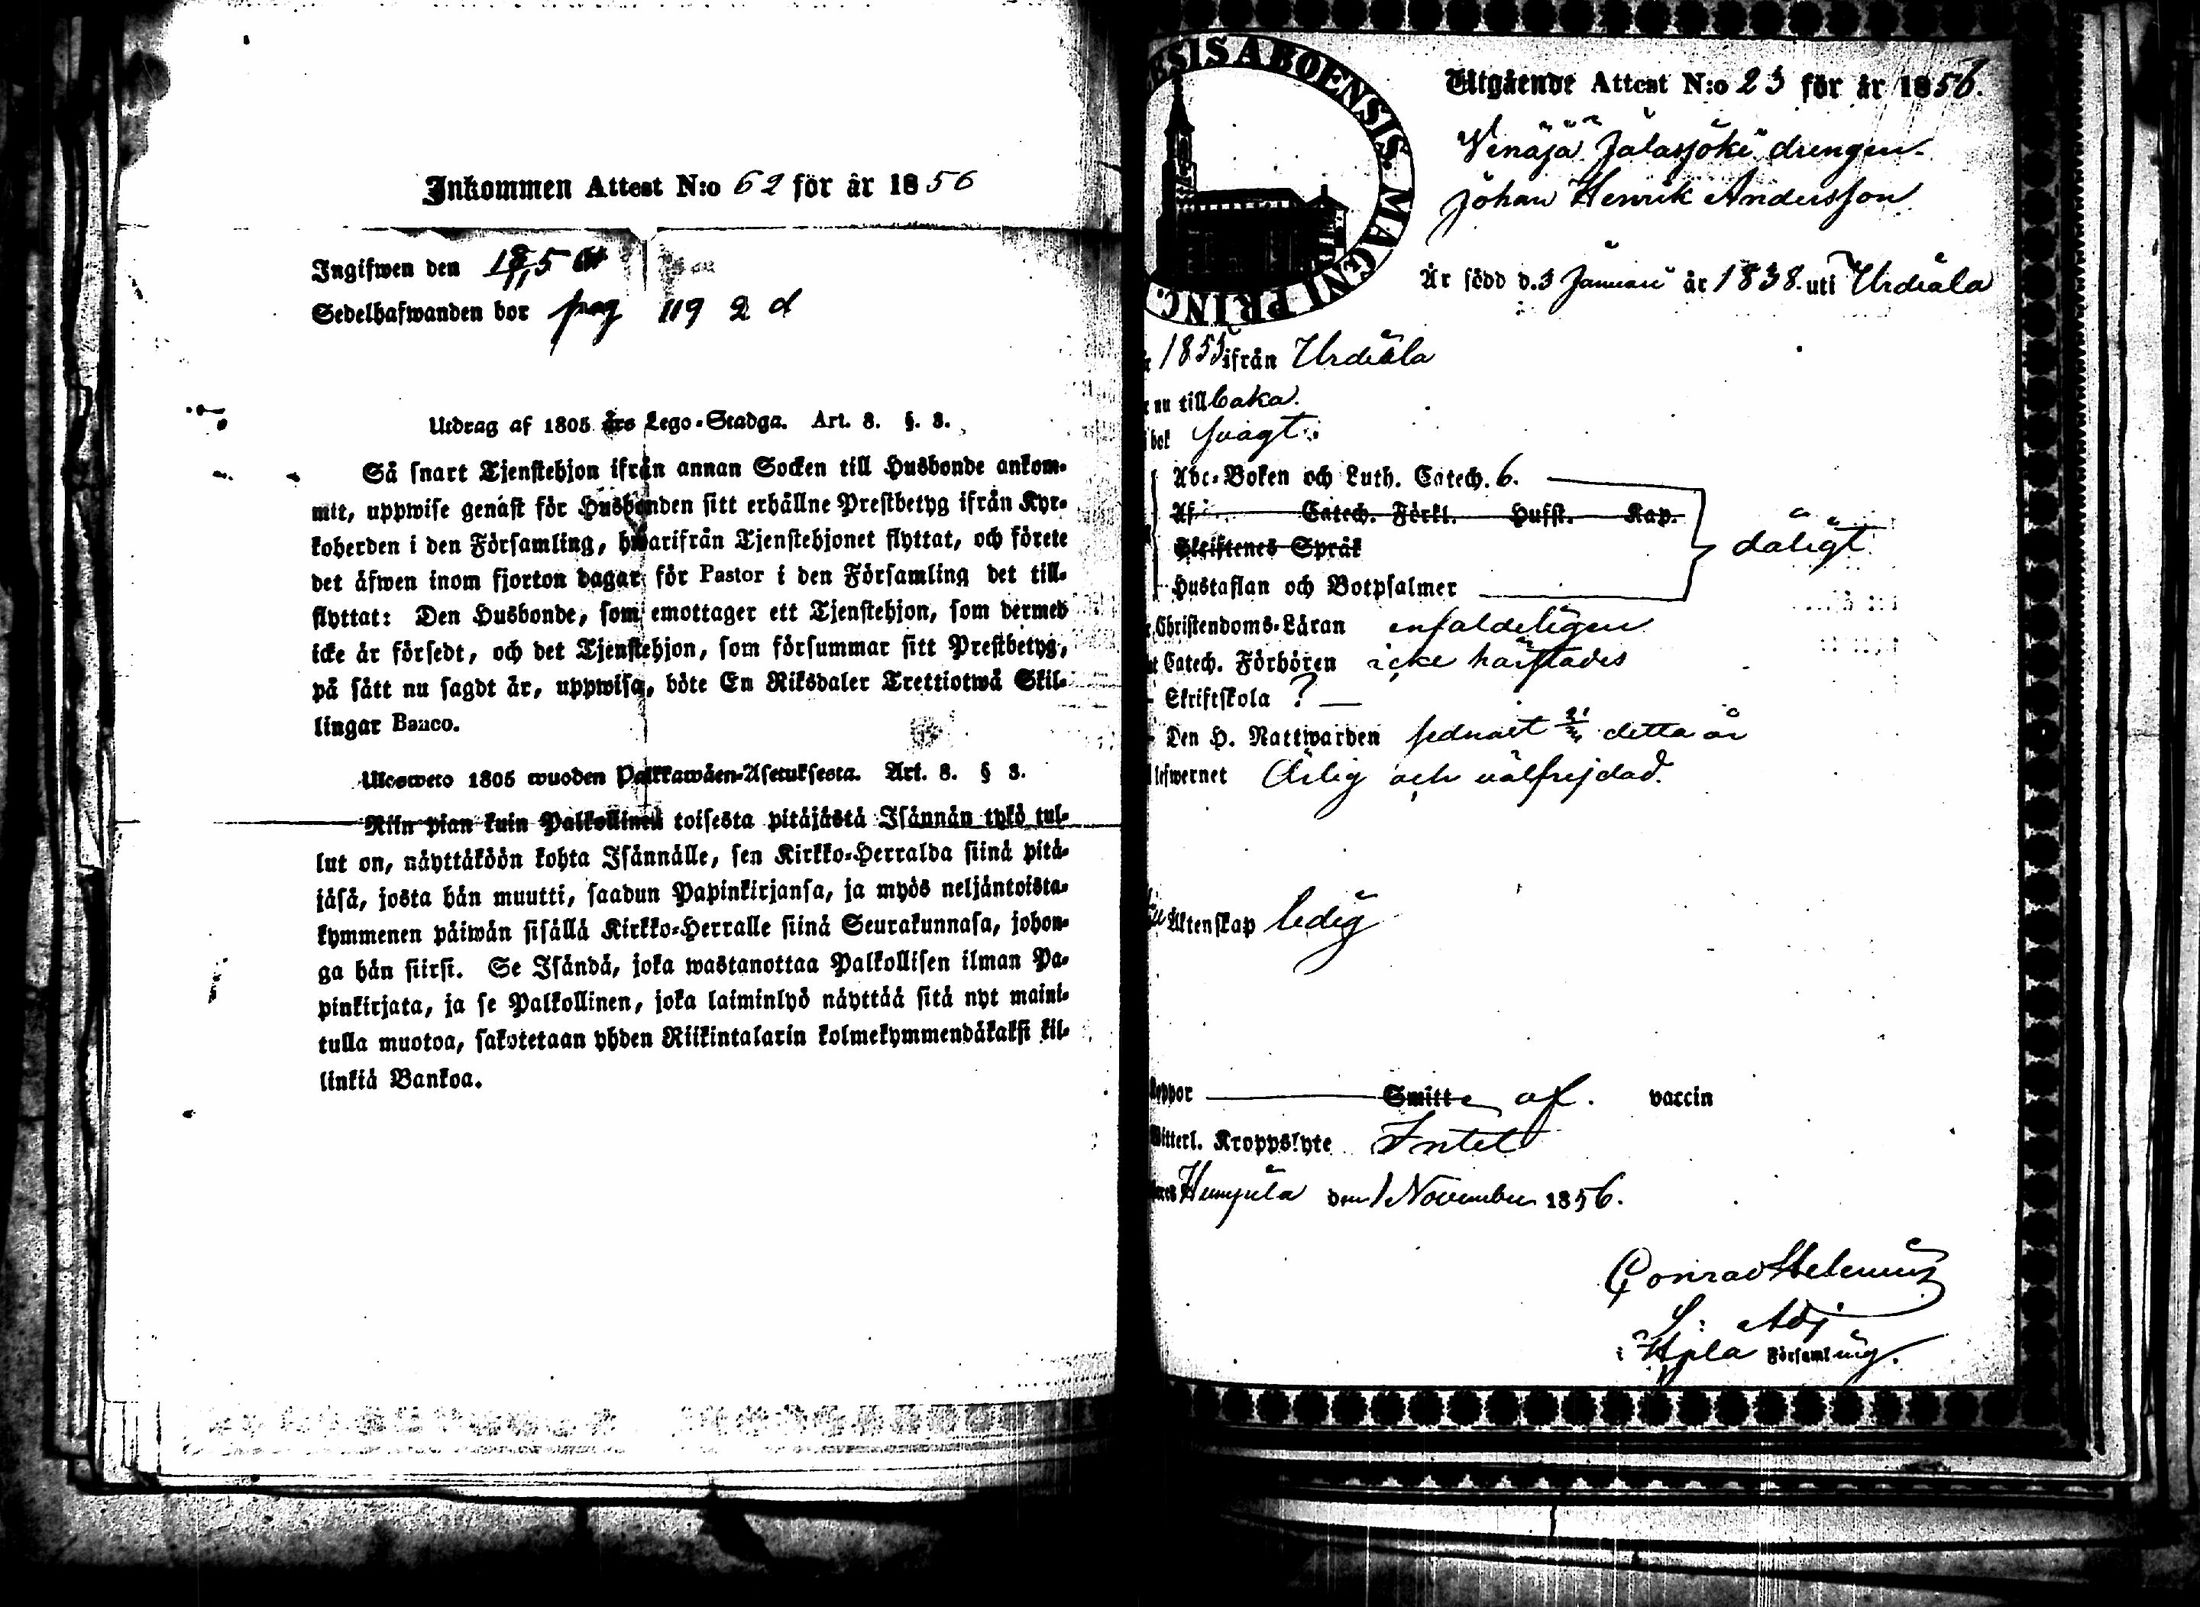 Inkommen Attest N:o 62 för år 1856
Ingifwen den
Sedelhafwanden bor pag 119 2 d
Utdrag af 1805 års Lego-Stadga. Art. 8. §. 3.
Så snart Tjenstehjon ifrån annan Socken till Husbonde ankom-
mit, uppwise genast för Husbonden sitt erhållne Prestbetyg ifrån Kyr-
koherden i den Församling, hwarifrån Tjenstehjonet flyttat, och förete
det äfwen inom fjorton dagar för Pastor i den Församling det till-
flyttat: Den Husbonde, som emottager ett Tjenstehjon, som dermed
icke är försedt, och det Tjenstehjon, som försummar sitt Prestbetyg,
på sätt nu sagdt är, uppwisa, böte En Riksdaler Trettiotwå Skil-
lingar Banco.
Ulosweto 1805 wuoden Palkkawäen-Asetuksesta. Art. 8. § 3.
Niin pian kuin Palkollinen toisesta pitäjästä Isännän tykö tul-
lut on, näyttäköön kohta Isännälle, sen Kirkko-Herralda siinä pitä-
jäsä, josta hän muutti, saadun Papinkirjansa, ja myös neljäntoista-
kymmenen päiwän sisällä Kirkko-Herralle siinä Seurakunnasa, johon-
ga hän siirsi. Se Isändä, joka wastanottaa Palkollisen ilman Pa-
pinkirjata, ja se Palkollinen, joka laiminlyö näyttää sitä nyt maini-
tulla muotoa, sakotetaan yhden Riikintalarin kolmekymmendäkaksi kil-
linkiä Bankoa.
ESIS ABOENSIS. MAGNI PRINC.
Utgående Attest N:o 23 för år 1856.
Venäjä Jalasjöki drengen
Johan Henrik Andersson
Är född d. 3 Januari år 1838. uti Urdiala
1855 ifrån Urdiala
nu tillbaka.
bok svagt.
Abc-Boken och Luth. Catech. 6.
Catech. Förkl. Husst. Kap.
Skriftenes Språk
dåligt
Hustaflan och Botpsalmer
Christendoms-Läran enfaldeligen
Catech. Förhören icke
Skriftskola ?
Den H. Nattwarden sednast detta år
lefwernet Ärlig och välfrejdad.
Äktenskap ledig
Koppor Smitte af. vaccin
Witterl. Kroppslyte Intet
Humpila den 1 November 1856.
Conrad Helenius
Adj
i Hpla Församling.